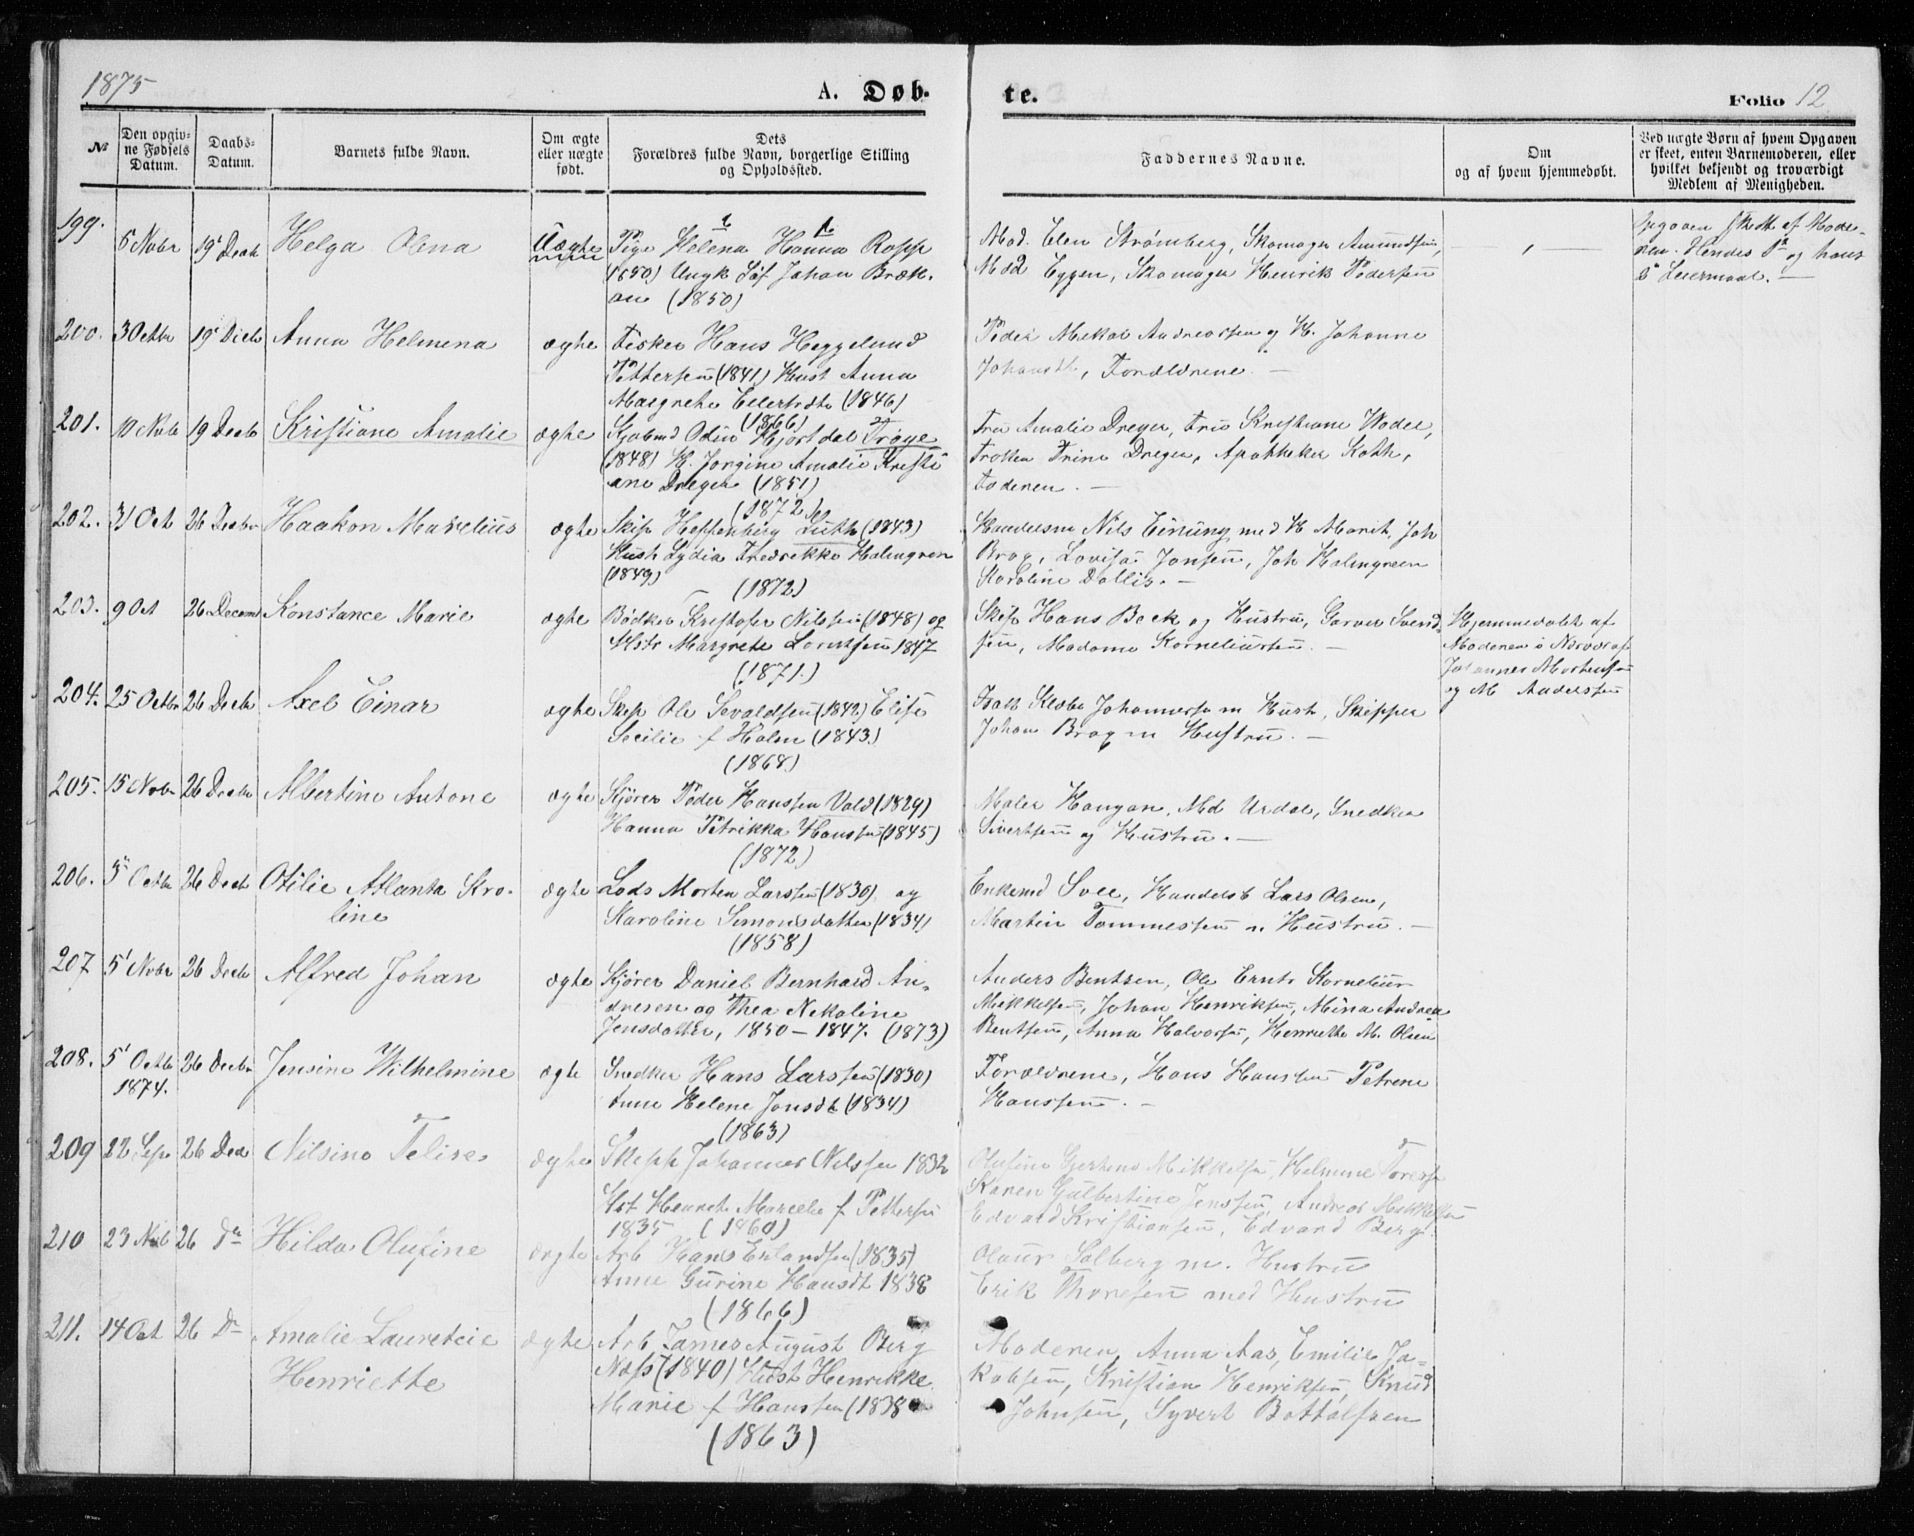 1875
A. Døb-
te.
Folio 12
№
Den opgivne Fødsels Datum.
Daabs-Datum.
Barnets fulde Navn.
Om ægte eller uægte født.
Dets Forældres fulde Navn, borgerlige Stilling og Opholdssted.
Faddernes Navne.
Om og af hvem hjemmedøbt.
Ved uægte Børn af hvem Opgaven er skeet, enten Barnemoderen, eller hvilket bekjendt og troværdigt Medlem af Menigheden.
199. 6 Nobr 19' Decb Helga Olena Uægte Pige Helena Hanna Ropp
(1850) Ungk Johan Bræk-
an (1850)
Mad. Elen Strømberg, Skomager Amundsen,
Mad Eggen, Skomager Henrik Pedersen
Opgaven skedt af Mode-
ren. Hendes 1ste og hans
2 Leiermaal. —
200. 3 Octbr 19' Decb Anna Helmena ægte Fisker Hans Heggelund
Pettersen (1841) Hust Anna
Margrethe Eilertsdtr (1846)
(1866)
Peder Mikal Andreassen og H. Johanne
Johansdtr, Forældrene. —
201. 10 Novb 19 Decb Kristiane Amalie ægte Kjøbmd Odin Hjortdal Trøye
(1848) H. Jorgine Amalie Kristi
ane Dreyer (1851)
(1872)
Fru Amalie Dreyer, Fru Kristiane Wadel,
Frøken Trine Dreyer, Apotheker Koth,
Faderen. —
202. 31 Oct 26 Decbr Haakon Marelius ægte Skip Luth (1843)
Hust Lydia Fredrekke Holmgren
(1849) (1872)
Handelsm Nils Einung med H Marit, Joh
Brag, Lovisa Jonsen, Joh Holmgreen
Karoline Dallis. —
203. 9 Oct 26 Decemb Konstance Marie ægte Bødker Kristofer Nilssen (1848) og
Hstr Margrete Lorntsen 1847
(1871.)
Skip Hans Beck og Hustru, Garver Svend
sen, Madame Korneliussen. —
Hjemmedøbt af
Moderen i Nærvær af
Johannes Mortensen
og M Anderssen
204. 25 Octbr 26 Decbr Axel Einar ægte Skip Ole Sevaldsen (1842) Elise
Secilie f Holm (1843)
(1868)
Johannessen m Hust, Skipper
Johan Brag m Hustru. —
205. 15 Nobr 26 Decbr Albertine Antone ægte Kjører Peder Hanssen Vold (1829)
Hanna Petrikka Hanssen (1845)
(1872)
Maler Haugan, Md Urdal, Snedker
Sivertsen og Hustru. —
206. 3 Octbr 26 Decb Otilie Atlanta Kro-
line ægte Lods Morten Larssen (1830) og
Karoline Simonsdatter (1834)
(1858)
Enkemd Svee, Handelsb Lars Olsen,
Martin Tommessen m Hustru. —
207 5' Nobr 26 Decb Alfred Johan ægte Kjører Daniel Bernhard An-
dresen og Thea Nekoline
Jensdatter, 1850 — 1847. (1873)
Anders Bentsen, Ole Ernts Kornelius
Mikkelsen, Johan Henriksen, Mina Andrea
Bentsen, Anna Halvorsen, Henriette M. Olsen
208. 5' Octbr 1874. 26 Decbr Jensine Wilhelmine ægte Snedker Hans Larssen (1830)
Anne Helene Jonsdt (1834)
(1863)
Forældrene, Hans Hanssen Petrene
Hanssen. —
209 22 Sep 26 Dec Nilsine Felise ægte Skipp Johannes Nilssen 1832
Hst Henrette Marselie f Pettersen
1835 (1860)
Olufine Mikkelsen, Helmine
Karen Gulbertine Jenssen, Andreas Mikkelsen
Edvard Kristiansen, Edvard Berg.
210 23 Novb 26 Dn Hilda Olufine ægte Arb Hans Erlandsen (1835)
Anne Gurine Hansdt 1838
(1866)
Olaus Solberg m. Hustru
Erik Thoresen med Hustru
211. 14 Oct 26 Dn Amalie Lauretcie
Henriette ægte Arb James August Berg
Næss (1840) Hust Henrikke
Marie f Hanssen (1838
(1863)
Moderen, Anna Aas, Emilie Ja-
kobsen, Kristian Henriksen, Knud
Johnsen, Syvert Bottolfsen